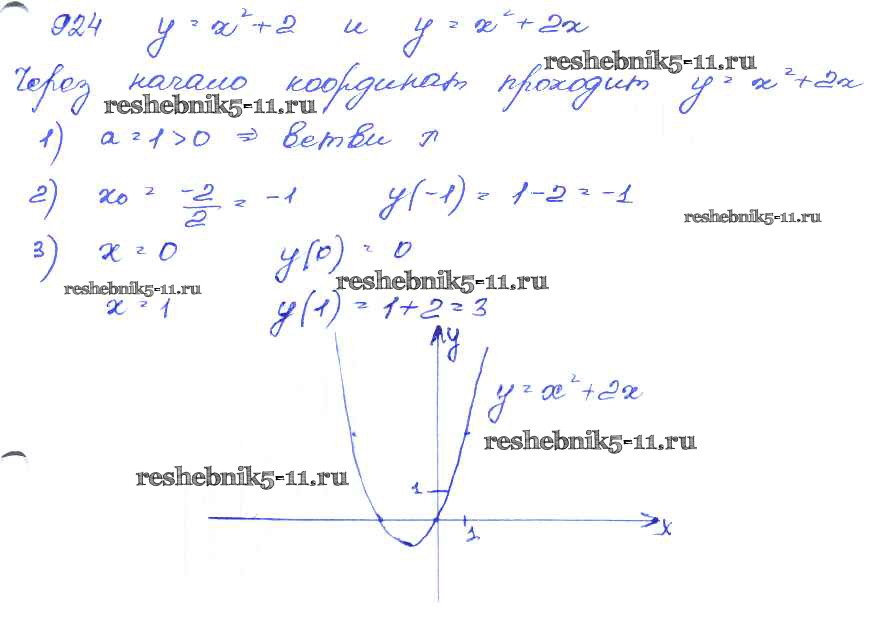 924 y = x² + 2 и y = x² + 2x
reshebnik5-11.ru
Через начало координат проходит y = x² + 2x
reshebnik5-11.ru
1) a = 1 > 0 ⇒ ветви
2) x₀ = -2/2 = -1 y(-1) = 1 - 2 = -1
reshebnik5-11.ru
3) x = 0 y(0) = 0
reshebnik5-11.ru
reshebnik5-11.ru
x = 1 y(1) = 1 + 2 = 3
y
y = x² + 2x
reshebnik5-11.ru
reshebnik5-11.ru
1
1
x